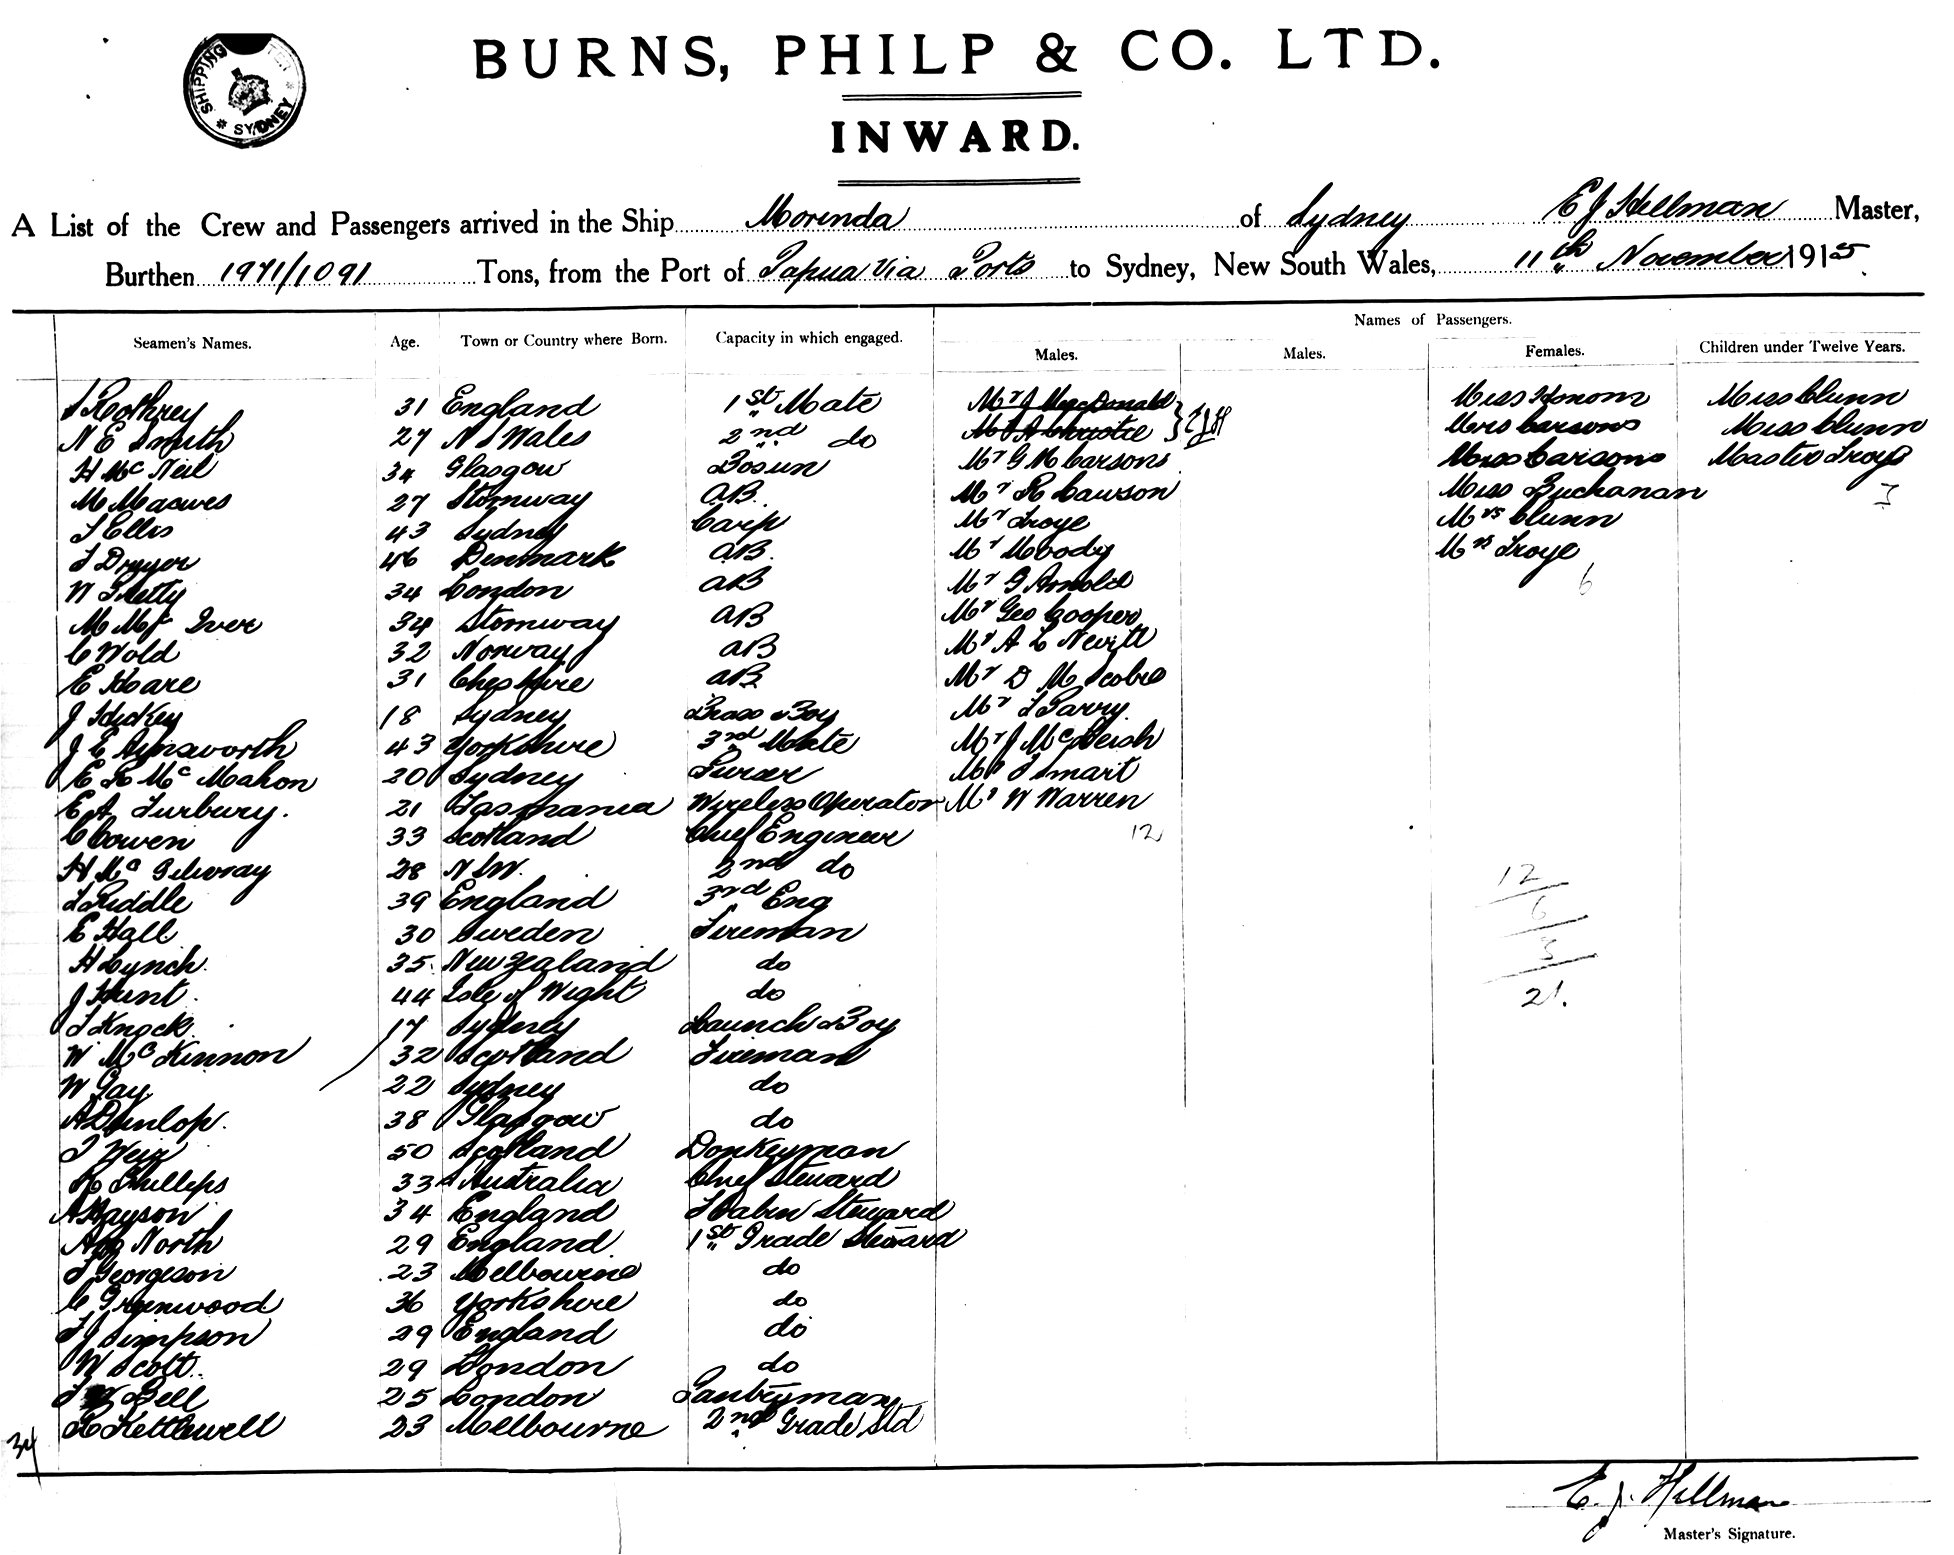 SHIPPING SYDNEY
BURNS, PHILP & CO. LTD.
INWARD.
A List of the Crew and Passengers arrived in the Ship Morinda of Sydney E J Hillman Master,
Burthen 1971/1091 Tons, from the Port of Papua Via Ports to Sydney, New South Wales, 11th November 1915.
Names of Passengers.
Seamen's Names. Age. Town or Country where Born. Capacity in which engaged. Males. Males. Females. Children under Twelve Years.
Rothrey 31 England 1st Mate Mr J MacDonald Miss Honom Miss Clunn
N E Smith 27 N S Wales 2nd do Mr A Christie Mrs Carsons Miss Clunn
H Mc Neil 34 Glasgow Bosun Mr G M Carsons Miss Carsons Master Troye
M Macives 27 Stornway AB. Mr R Cawson Miss Buchanan 3
T Ellis 43 Sydney Carp Mr Troye Mrs Clunn
T Dryer 46 Denmark AB. Mr Moody Mrs Troye
W Pretty 34 London AB Mr G Arnold 6
M Mc Iver 34 Stornway AB Mr Geo Cooper
C Wold 32 Norway AB Mr A L Nevitt
E Hoare 31 Cheshire AB. Mr D M Scobie
J Hickey 18 Sydney Brass Boy Mr T Parry
J E Aynsworth 43 Yorkshire 3rd Mate Mr J McLeish
E R Mc Mahon 20 Sydney Purser Mr T Smart
E A Turbury. 21 Tasmania Wireless Operator Mr W Warren
C Cowen 33 Scotland Chief Engineer 12
H Mc Gilvray 28 N S W. 2nd do 12
Riddle 39 England 3rd Eng 6
E Hall 30 Sweden Fireman 3
H Lynch. 35. New Zealand do 21.
J Hunt. 44 Isle of Wight do
T Knock. 17 Sydney Launch Boy
W Mc Kinnon 32 Scotland Fireman
W Gay 22 Sydney do
A Dunlop. 38 Glasgow do
T Weir 50 Scotland Donkeyman
R Phillips 33 Australia Chief Steward
A Hayson 34 England F Cabin Steward
North 29 England 1st Grade Steward
T Georgeson 23 Melbourne do
C Greenwood 36 Yorkshire do
T J Simpson 29 England do
W Scott. 29 London do
Bell 25 London Pantryman
R Kettlewell 23 Melbourne 2nd Grade Std
34
E. J. Hillman
Master's Signature.